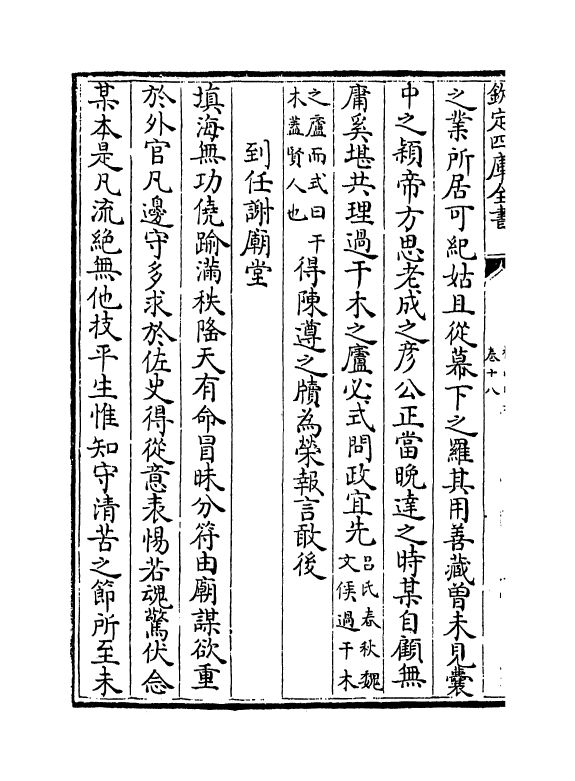 欽定四庫全書
卷十八
之業所居可紀姑且從幕下之羅其用善藏曾未見囊
中之穎帝方思老成之彦公正當晩達之時某自顧無
庸奚堪共理過干木之廬必式問政宜先吕氏春秋魏文侯過干木
之廬而式曰干木葢賢人也得陳遵之牘為榮報言敢後
到任謝廟堂
填海無功僥踰滿秩隆天有命冒昧分符由廟謀欲重
於外官凡邊守多求於佐史得從意表惕若魂驚伏念
某本是凡流絶無他技平生惟知守清苦之節所至未